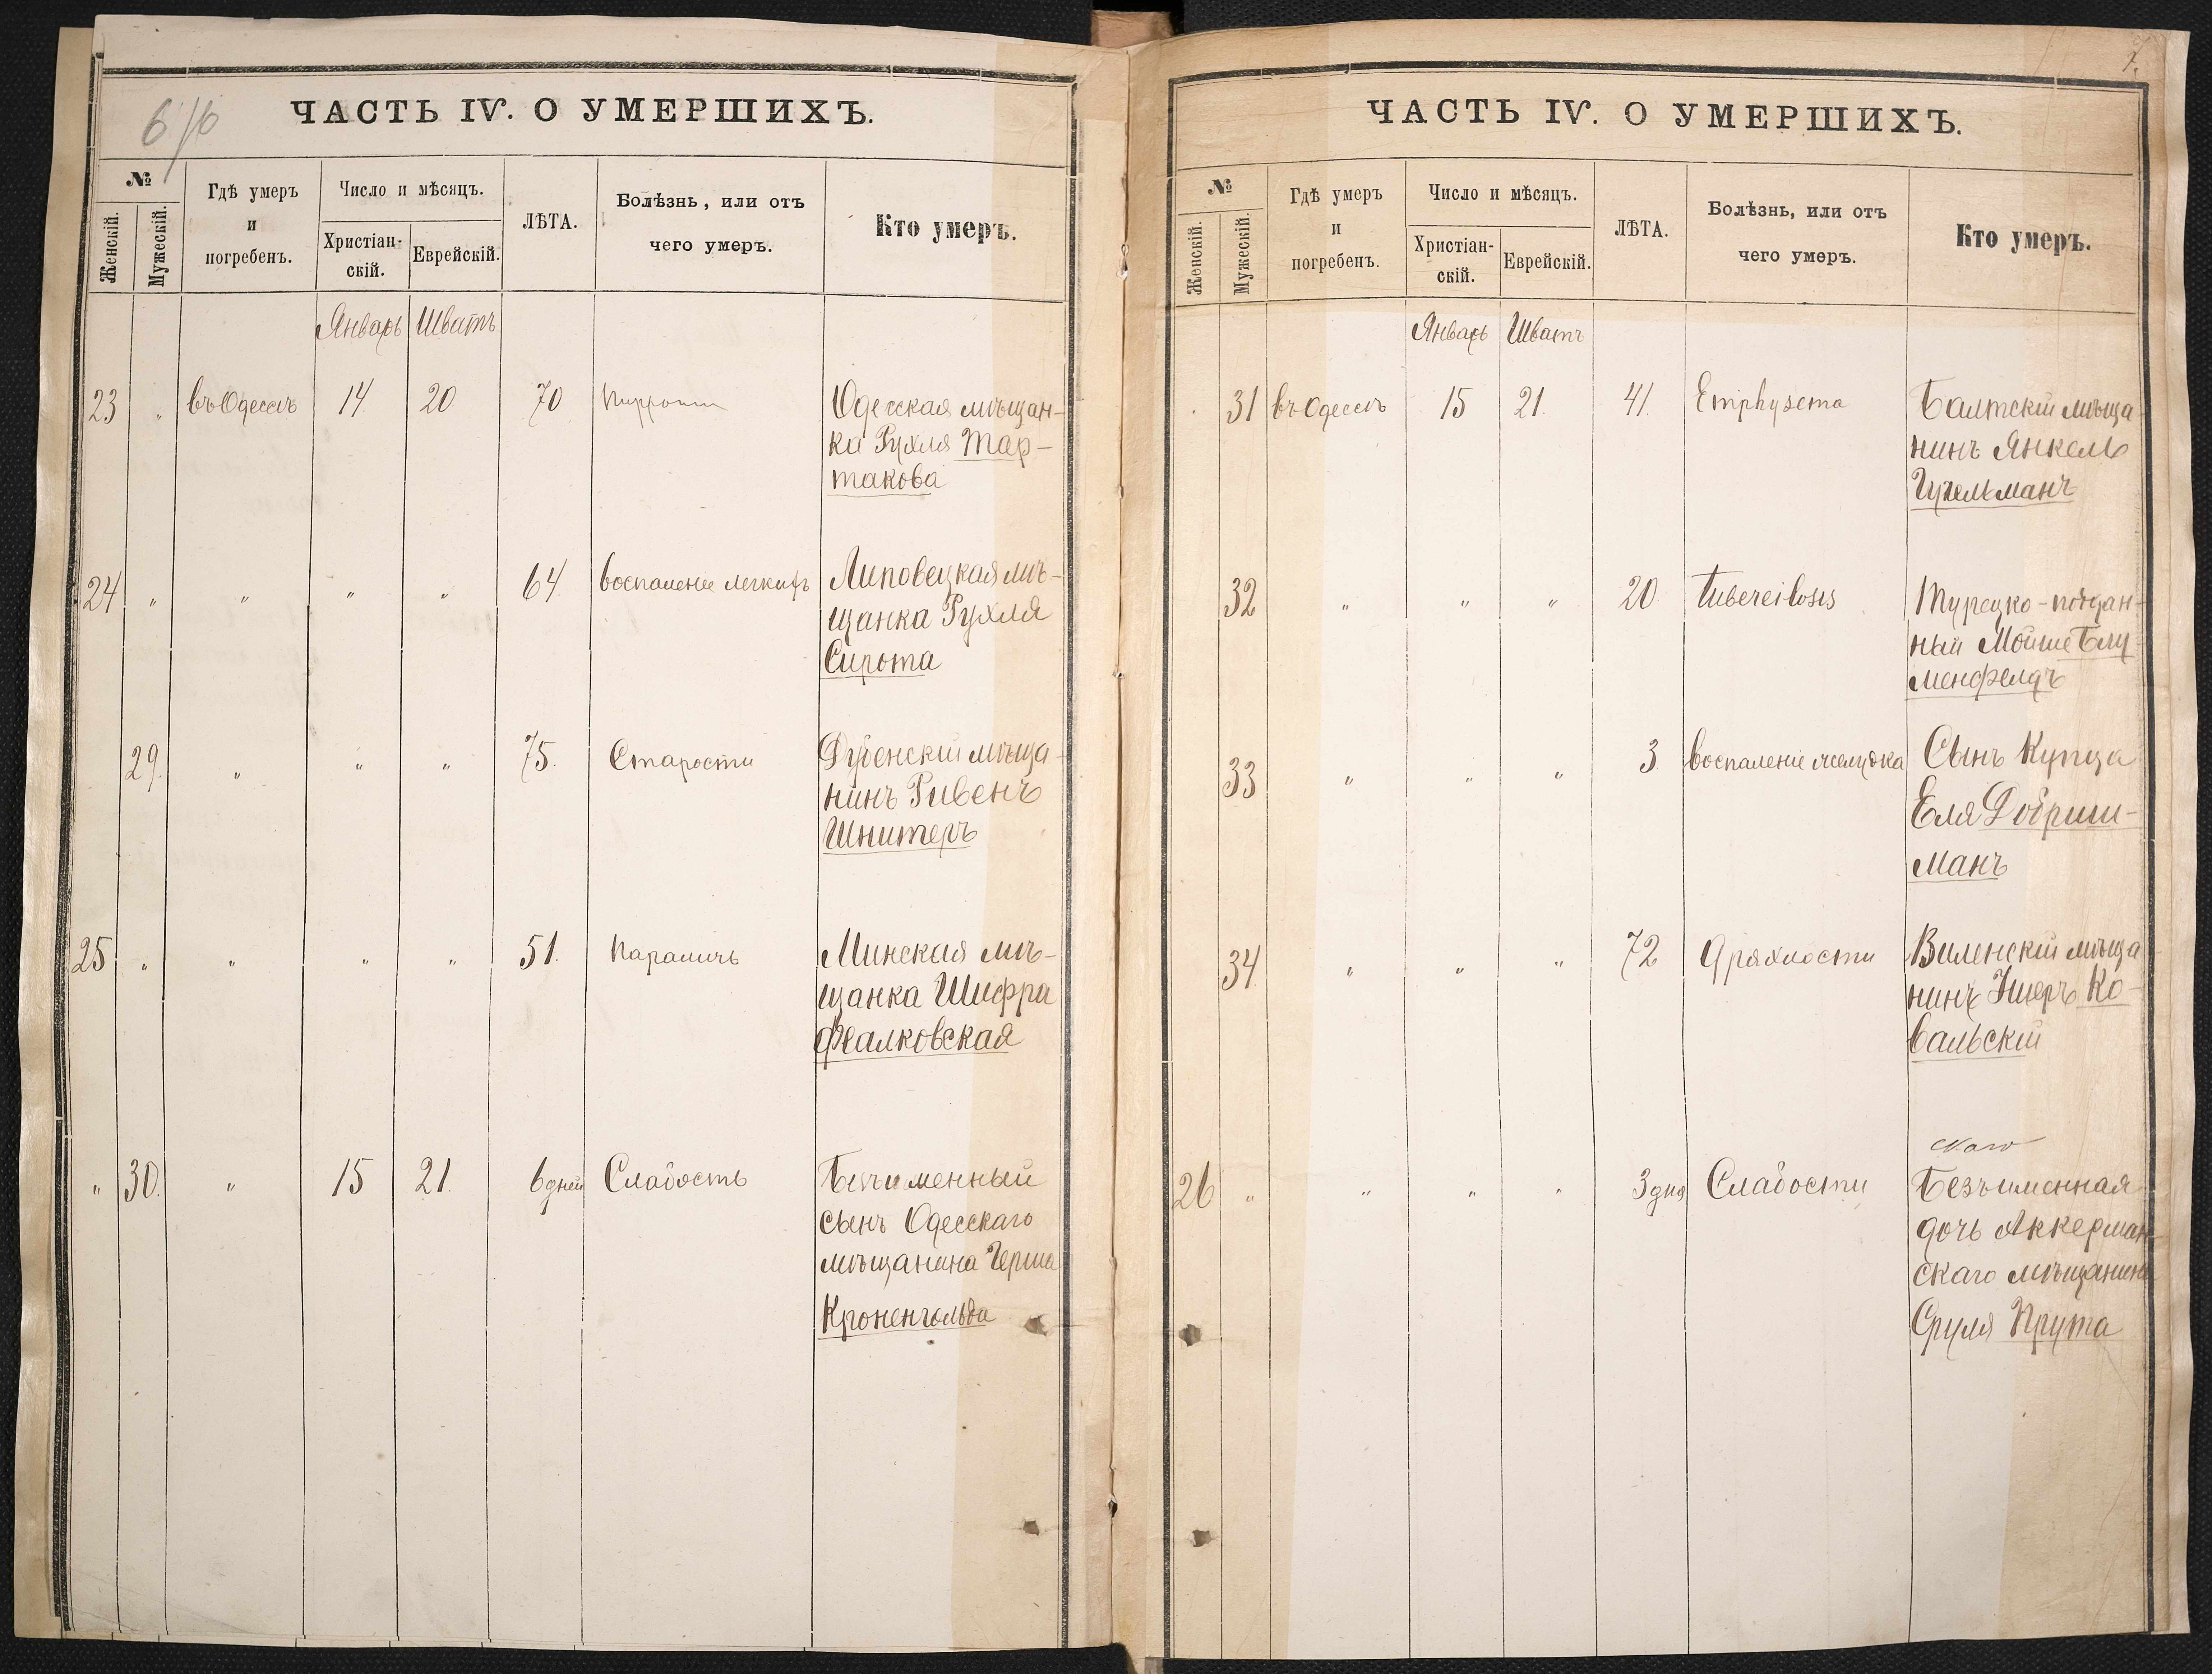 6/6
ЧАСТЬ IV. О УМЕРШИХЪ.
№
Женскій.
Мужескій.
Гдѣ умеръ
и
погребенъ.
Число и мѣсяцъ.
Христіан-
скій.
Еврейскій.
ЛѢТА.
Болѣзнь, или отъ
чего умеръ.
Кто умеръ.
Январь Шватъ
23 " въ Одессѣ 14 20 70 Одесская мѣщан-
ка Рухля Тар-
такова
24 " " " " 64 воспаленіе легкихъ Липовецкая мѣ-
щанка Рухля
Сирота
29. " " " 75. Старости Дубенскій мѣща-
нинъ Ривенъ
Шнитеръ
25 " " " " 51. Параличъ Минская мѣ-
щанка Шифра
Фіалковская
" 30. " 15 21. 6 дней Слабость Безъименный
сынъ Одесскаго
мѣщанина Герша
Кроненгольда
7.
ЧАСТЬ IV. О УМЕРШИХЪ.
№
Женскій.
Мужескій.
Гдѣ умеръ
и
погребенъ.
Число и мѣсяцъ.
Христіан-
скій.
Еврейскій.
ЛѢТА.
Болѣзнь, или отъ
чего умеръ.
Кто умеръ.
Январь Шватъ
31 въ Одессѣ 15 21. 41. Emphysema Балтскій мѣща-
нинъ Янкель
Гугельманъ
32 " " " 20 tuberculosis Турецко-поддан-
ный Мойше Блу-
менфелдъ
33 " " " 3 воспаленіе желудка Сынъ Купца
Еля Добриш-
манъ
34 " " " 72 Дряхлости Виленскій мѣща-
нинъ Ушеръ Ко-
вальскій
26 " " " " 3 дня Слабости Безъименная
дочь Аккерман-
скаго мѣщанина
Сруля Прута